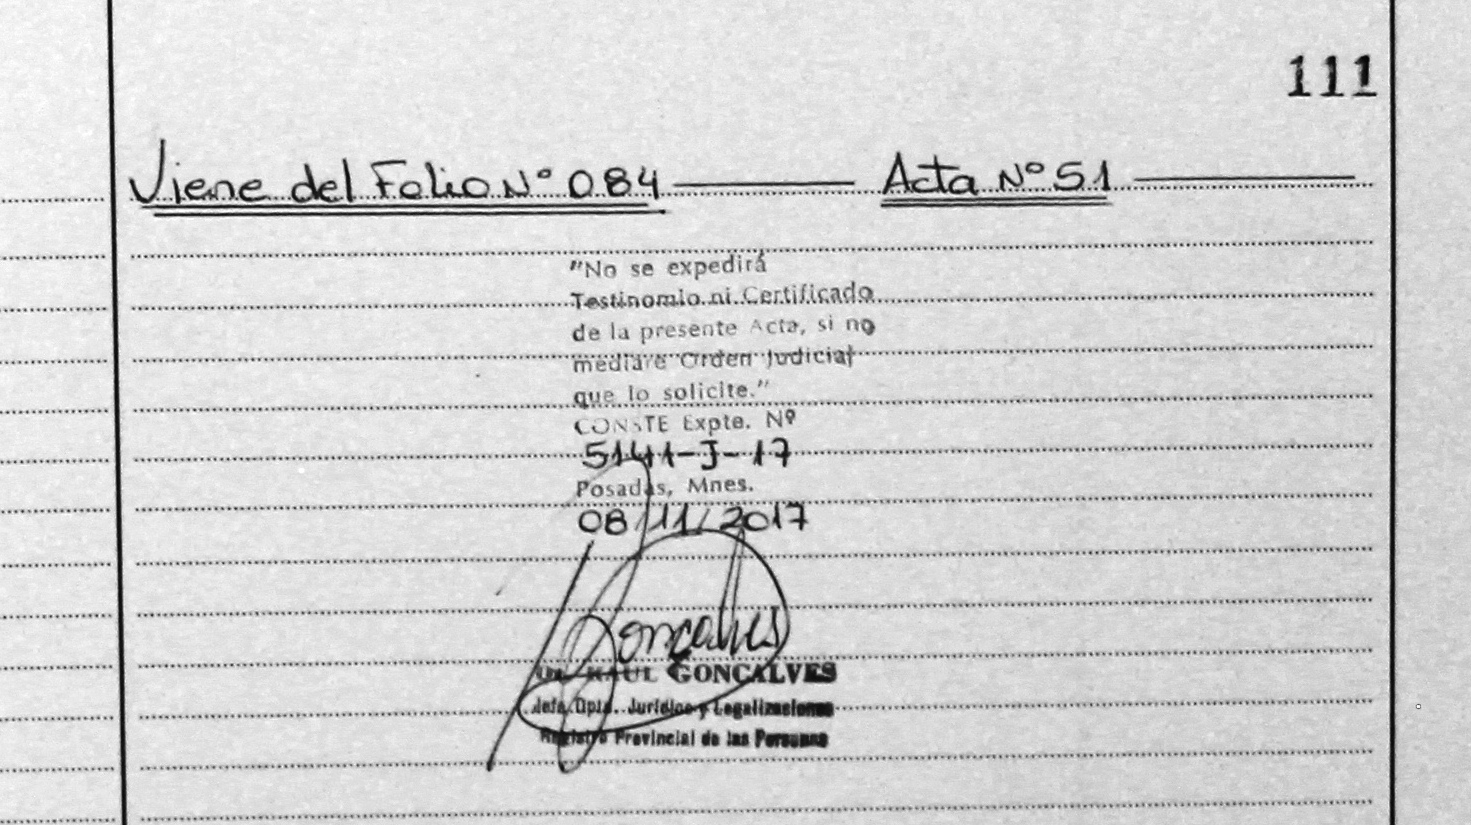 111
Viene del Folio Nº 084 Acta Nº 51
"No se expedirá
Testinomio ni Certificado
de la presente Acta, si no
mediare Orden Judicial
que lo solicite."
CONSTE Expte. Nº
5141-J-17
Posadas, Mnes.
08/11/2017
Goncalves
Dr. RAUL GONCALVES
Jefe Dpto. Jurídico y Legalizaciones
Registro Provincial de las Personas